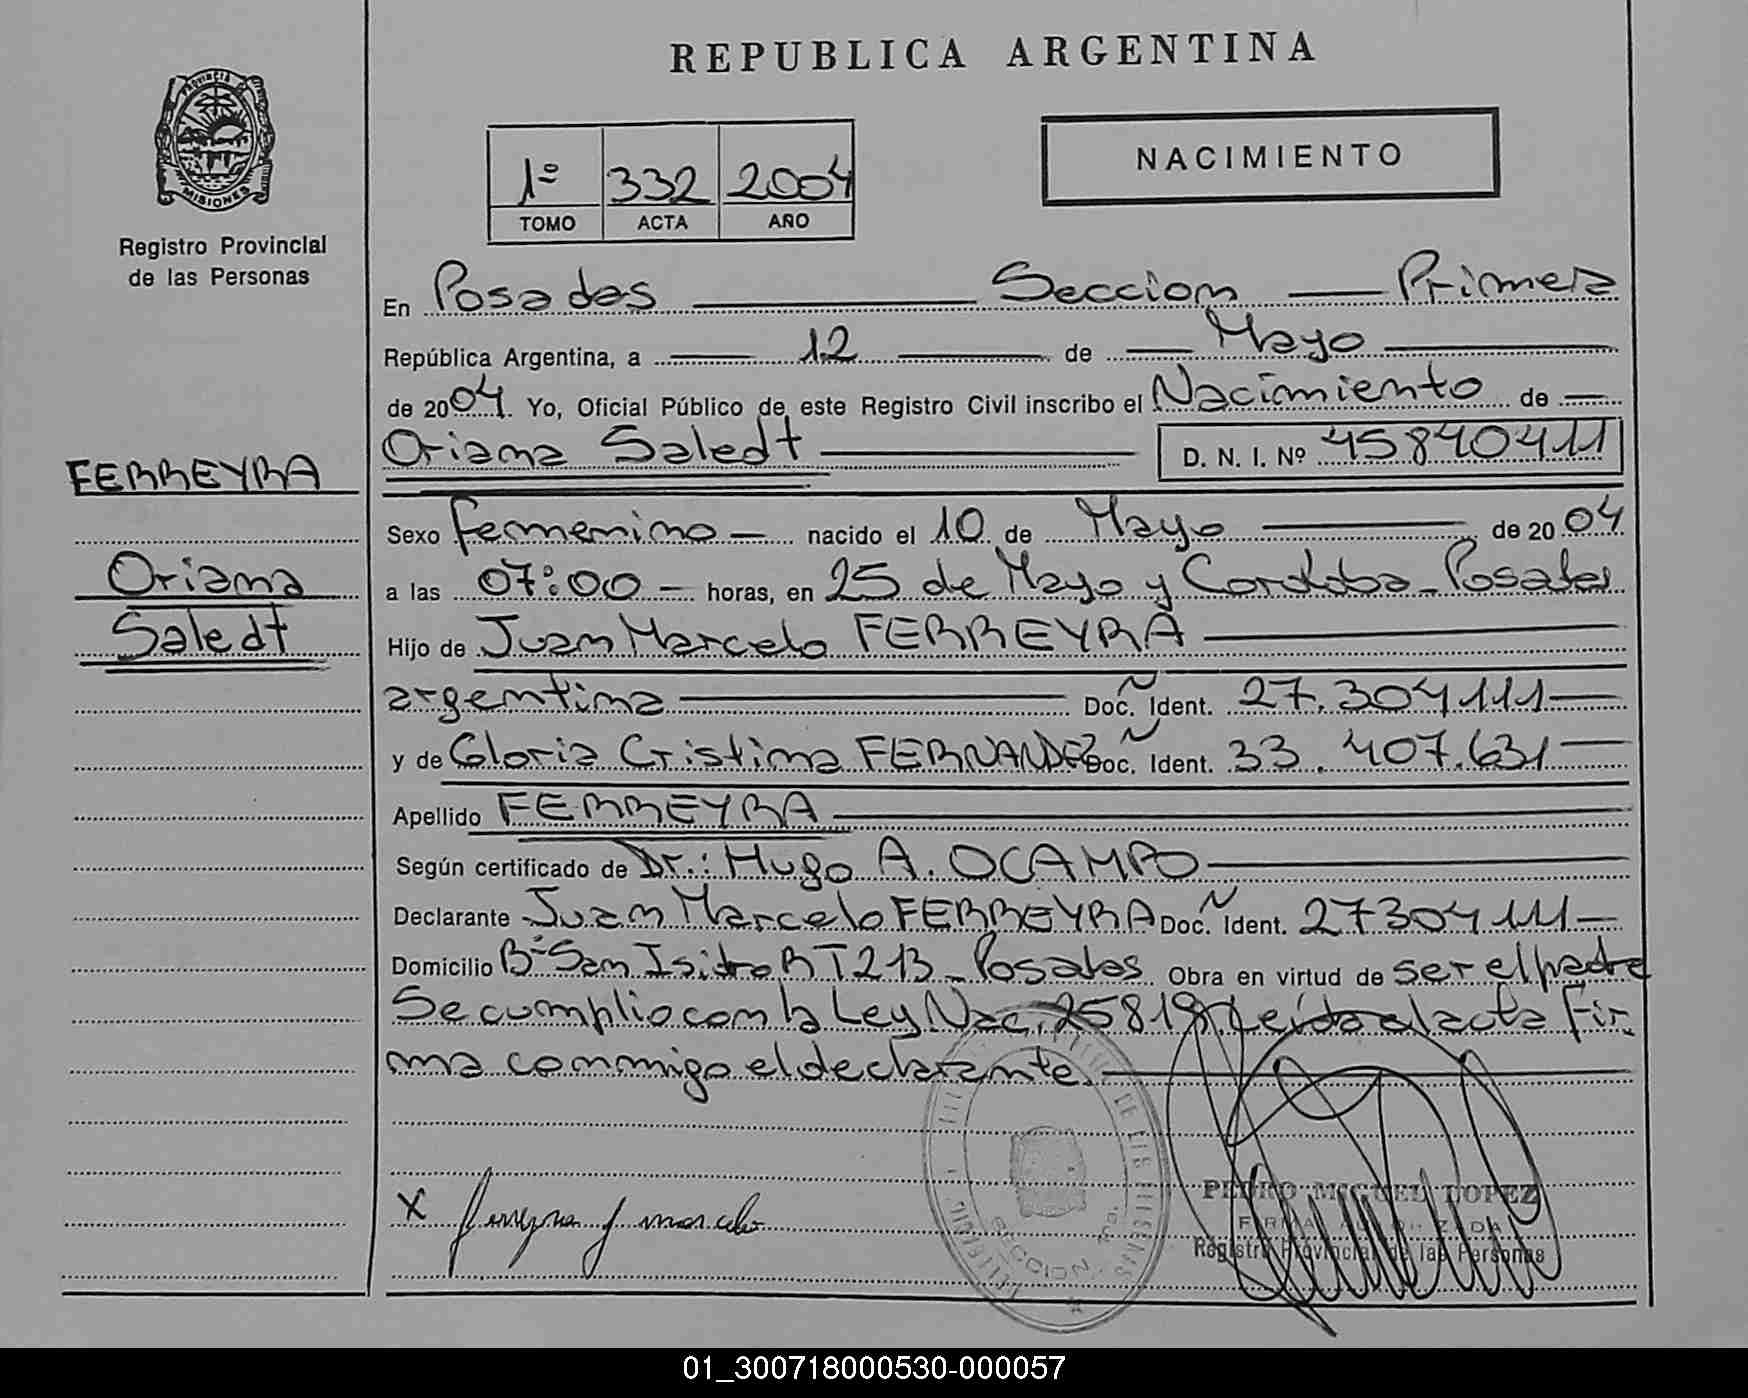 REPUBLICA ARGENTINA
PROVINCIA
MISIONES
Registro Provincial
de las Personas
1º 332 2004
TOMO ACTA AÑO
NACIMIENTO
En Posadas Seccion Primera
República Argentina, a 12 de Mayo
de 2004. Yo, Oficial Público de este Registro Civil inscribo el Nacimiento de
Oriana Saledt D. N. I. Nº 45840411
FERREYRA
Oriana
Saledt
Sexo femenino nacido el 10 de Mayo de 2004
a las 07:00 horas, en 25 de Mayo y Cordoba - Posadas
Hijo de Juan Marcelo FERREYRA
argentina Doc. Ident. 27.304111
y de Gloria Cristina FERNANDEZ Doc. Ident. 33.407.631
Apellido FERREYRA
Según certificado de Dr.: Hugo A. OCAMPO
Declarante Juan Marcelo FERREYRA Doc. Ident. 27304111
Domicilio Bº San Isidro Posadas Obra en virtud de ser el padre
Se cumplio con la Ley Nac. 25819. Leída el acta fir
ma conmigo el declarante.
X
SECCION
PEDRO MIGUEL LOPEZ
FIRMA AUTORIZADA
Registro Provincial de las Personas
01_300718000530-000057